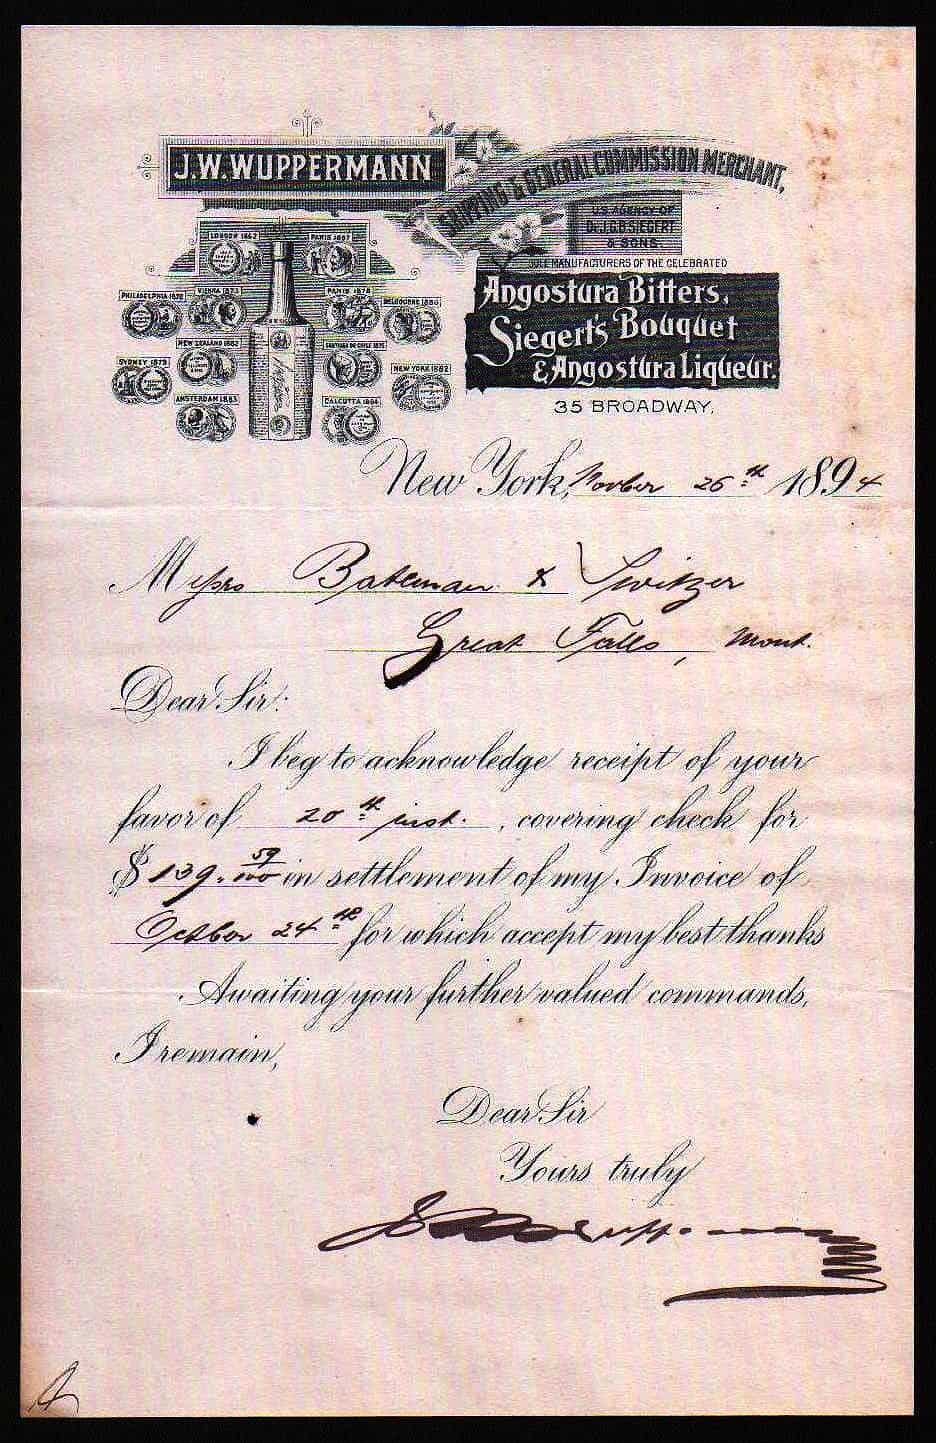 J.W. WUPPERMANN
SHIPPING & GENERAL COMMISSION MERCHANT,
U.S. AGENCY OF
DR. J.G.B. SIEGERT
& SONS.
SOLE MANUFACTURERS OF THE CELEBRATED
Angostura Bitters,
Siegert's Bouquet
& Angostura Liqueur.
35 BROADWAY,
LONDON 1862
PARIS 1867
PHILADELPHIA 1876
VIENNA 1873
PARIS 1878
MELBOURNE 1880
NEW ZEALAND 1882
SANTIAGO DE CHILE 1875
SYDNEY 1879
NEW YORK 1882
AMSTERDAM 1883
CALCUTTA 1884
New York, Novber 26th 1894
Messrs Bateman & Switzer
Great Falls, Mont.
Dear Sir:
I beg to acknowledge receipt of your
favor of 20th inst., covering check for
$ 139.59/100 in settlement of my Invoice of
Octber 24th for which accept my best thanks
Awaiting your further valued commands,
I remain,
Dear Sir
Yours truly
J. W. Wuppermann